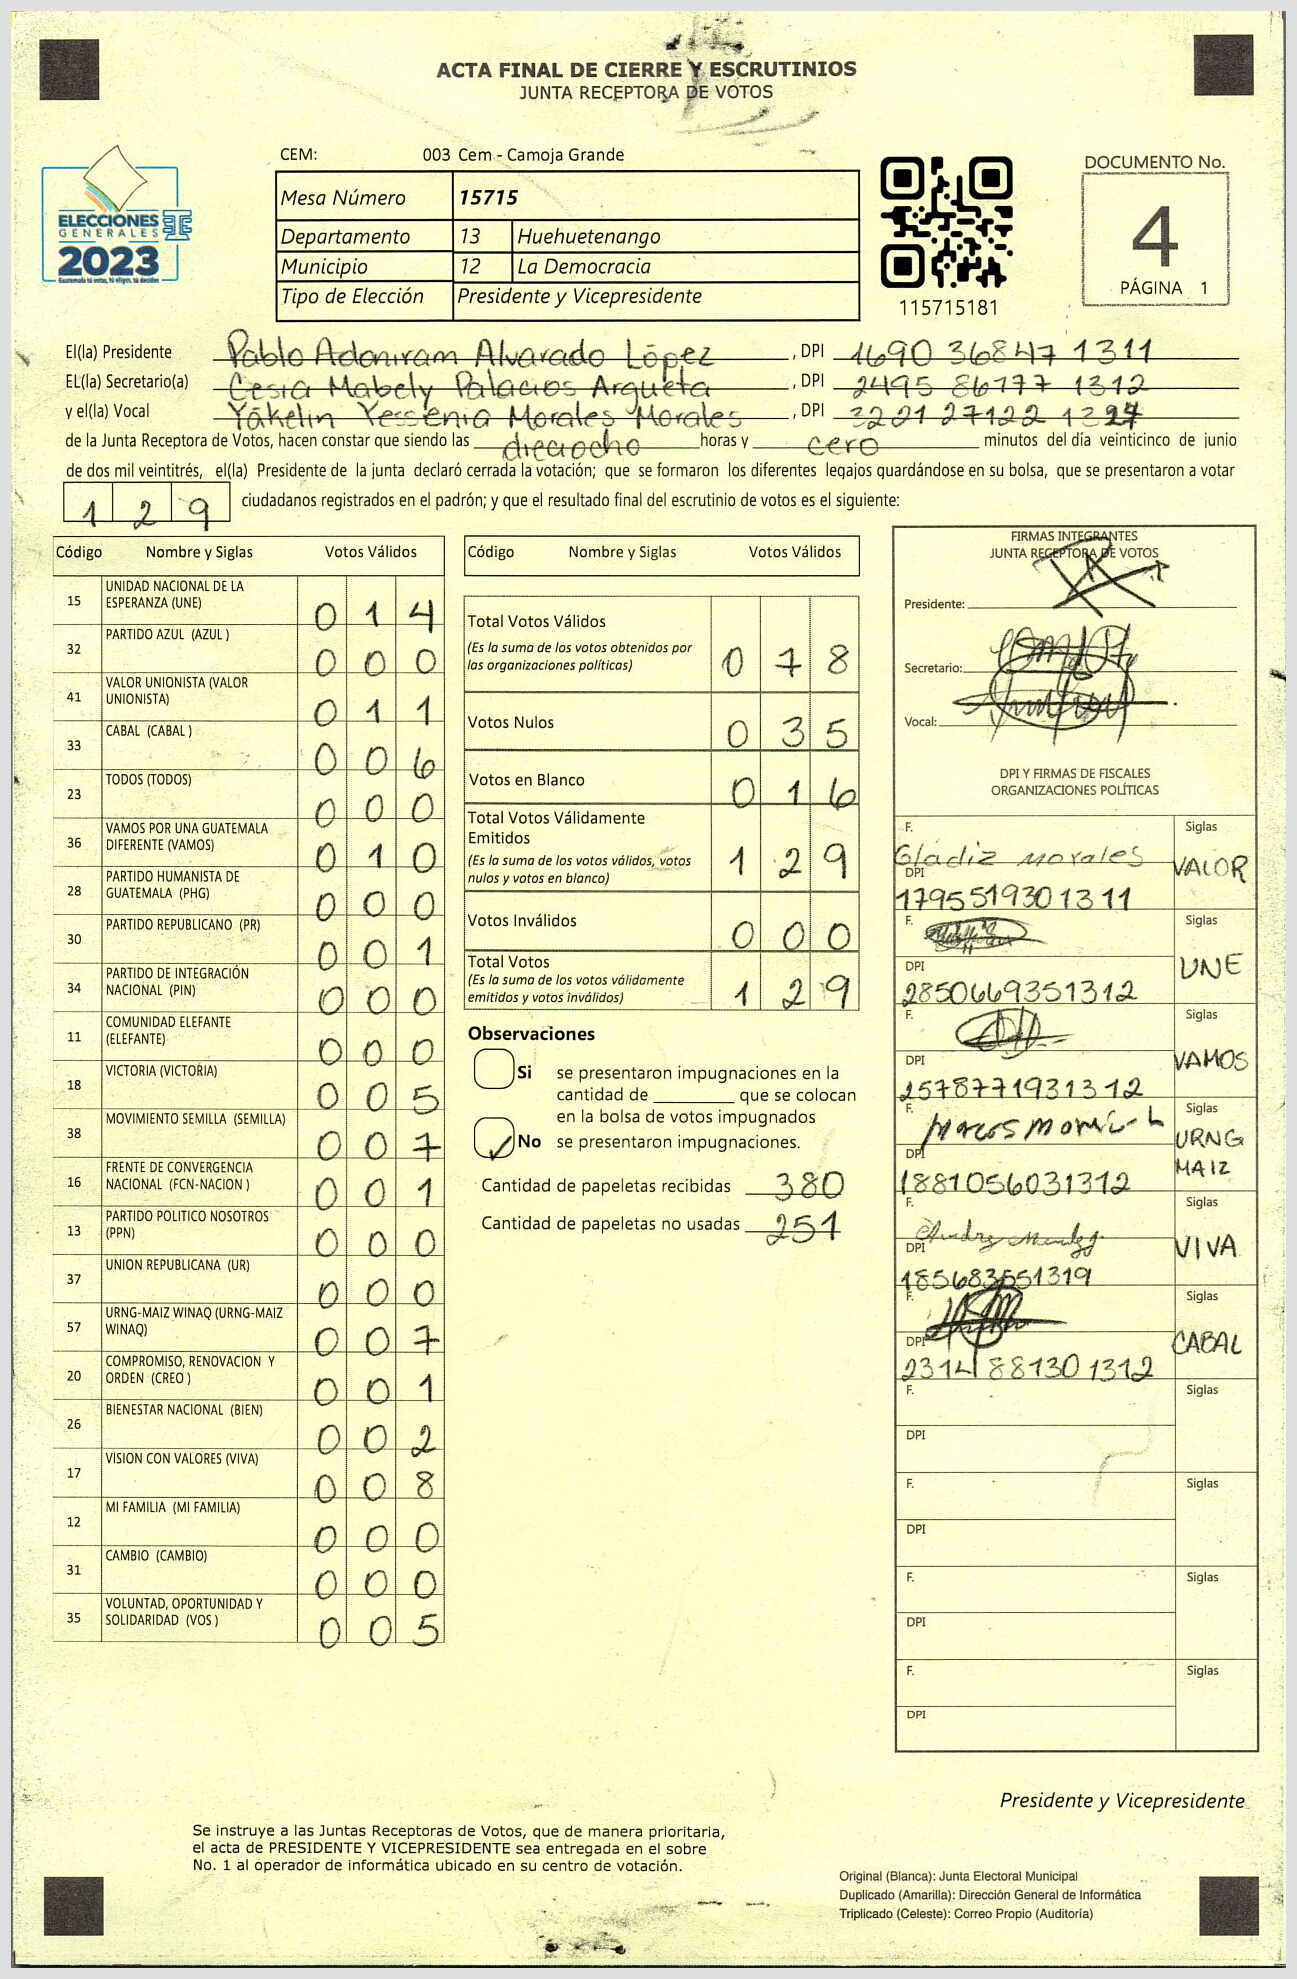 ACTA FINAL DE CIERRE Y ESCRUTINIOS
JUNTA RECEPTORA DE VOTOS
ELECCIONES
GENERALES
2023
CEM: 003 Cem - Camoja Grande
Mesa Número 15715
Departamento 13 Huehuetenango
Municipio 12 La Democracia
Tipo de Elección Presidente y Vicepresidente
115715181
DOCUMENTO No.
4
PÁGINA 1
El(la) Presidente Pablo Adoniram Alvarado López, DPI 1690 36847 1311
EL(la) Secretario(a) Cesia Mabely Palacios Argueta, DPI 2495 86177 1312
y el(la) Vocal Yakelin Yessenia Morales Morales, DPI 3221 27122
de la Junta Receptora de Votos, hacen constar que siendo las dieciocho horas y cero minutos del día veinticinco de junio
de dos mil veintitrés, el(la) Presidente de la junta declaró cerrada la votación; que se formaron los diferentes legajos guardándose en su bolsa, que se presentaron a votar
1 2 9 ciudadanos registrados en el padrón; y que el resultado final del escrutinio de votos es el siguiente:
Código Nombre y Siglas Votos Válidos
15 UNIDAD NACIONAL DE LA ESPERANZA (UNE) 0 1 4
32 PARTIDO AZUL (AZUL ) 0 0 0
41 VALOR UNIONISTA (VALOR UNIONISTA) 0 1 1
33 CABAL (CABAL ) 0 0 6
23 TODOS (TODOS) 0 0 0
36 VAMOS POR UNA GUATEMALA DIFERENTE (VAMOS) 0 1 0
28 PARTIDO HUMANISTA DE GUATEMALA (PHG) 0 0 0
30 PARTIDO REPUBLICANO (PR) 0 0 1
34 PARTIDO DE INTEGRACIÓN NACIONAL (PIN) 0 0 0
11 COMUNIDAD ELEFANTE (ELEFANTE) 0 0 0
18 VICTORIA (VICTORIA) 0 0 5
38 MOVIMIENTO SEMILLA (SEMILLA) 0 0 7
16 FRENTE DE CONVERGENCIA NACIONAL (FCN-NACION ) 0 0 1
13 PARTIDO POLITICO NOSOTROS (PPN) 0 0 0
37 UNION REPUBLICANA (UR) 0 0 0
57 URNG-MAIZ WINAQ (URNG-MAIZ WINAQ) 0 0 7
20 COMPROMISO, RENOVACION Y ORDEN (CREO ) 0 0 1
26 BIENESTAR NACIONAL (BIEN) 0 0 2
17 VISION CON VALORES (VIVA) 0 0 8
12 MI FAMILIA (MI FAMILIA) 0 0 0
31 CAMBIO (CAMBIO) 0 0 0
35 VOLUNTAD, OPORTUNIDAD Y SOLIDARIDAD (VOS ) 0 0 5
Código Nombre y Siglas Votos Válidos
Total Votos Válidos 0 7 8
(Es la suma de los votos obtenidos por
las organizaciones políticas)
Votos Nulos 0 3 5
Votos en Blanco 0 1 6
Total Votos Válidamente
Emitidos 1 2 9
(Es la suma de los votos válidos, votos
nulos y votos en blanco)
Votos Inválidos 0 0 0
Total Votos 1 2 9
(Es la suma de los votos válidamente
emitidos y votos inválidos)
Observaciones
Si se presentaron impugnaciones en la
cantidad de ________ que se colocan
en la bolsa de votos impugnados
No se presentaron impugnaciones.
Cantidad de papeletas recibidas 380
Cantidad de papeletas no usadas 251
FIRMAS INTEGRANTES
JUNTA RECEPTORA DE VOTOS
Presidente:
Secretario:
Vocal:
DPI Y FIRMAS DE FISCALES
ORGANIZACIONES POLÍTICAS
F. Gladiz Morales Siglas
DPI 1795519301311 VALOR
F. Siglas
DPI 2850669351312 UNE
F. Siglas
DPI 2578771931312 VAMOS
F. Siglas
DPI 1881056031312 URNG MAIZ
F. Siglas
DPI 185683551319 VIVA
F. Siglas
DPI 2314 88130 1312 CABAL
F. Siglas
DPI
F. Siglas
DPI
F. Siglas
DPI
F. Siglas
DPI
Presidente y Vicepresidente
Se instruye a las Juntas Receptoras de Votos, que de manera prioritaria,
el acta de PRESIDENTE Y VICEPRESIDENTE sea entregada en el sobre
No. 1 al operador de informática ubicado en su centro de votación.
Original (Blanca): Junta Electoral Municipal
Duplicado (Amarilla): Dirección General de Informática
Triplicado (Celeste): Correo Propio (Auditoría)